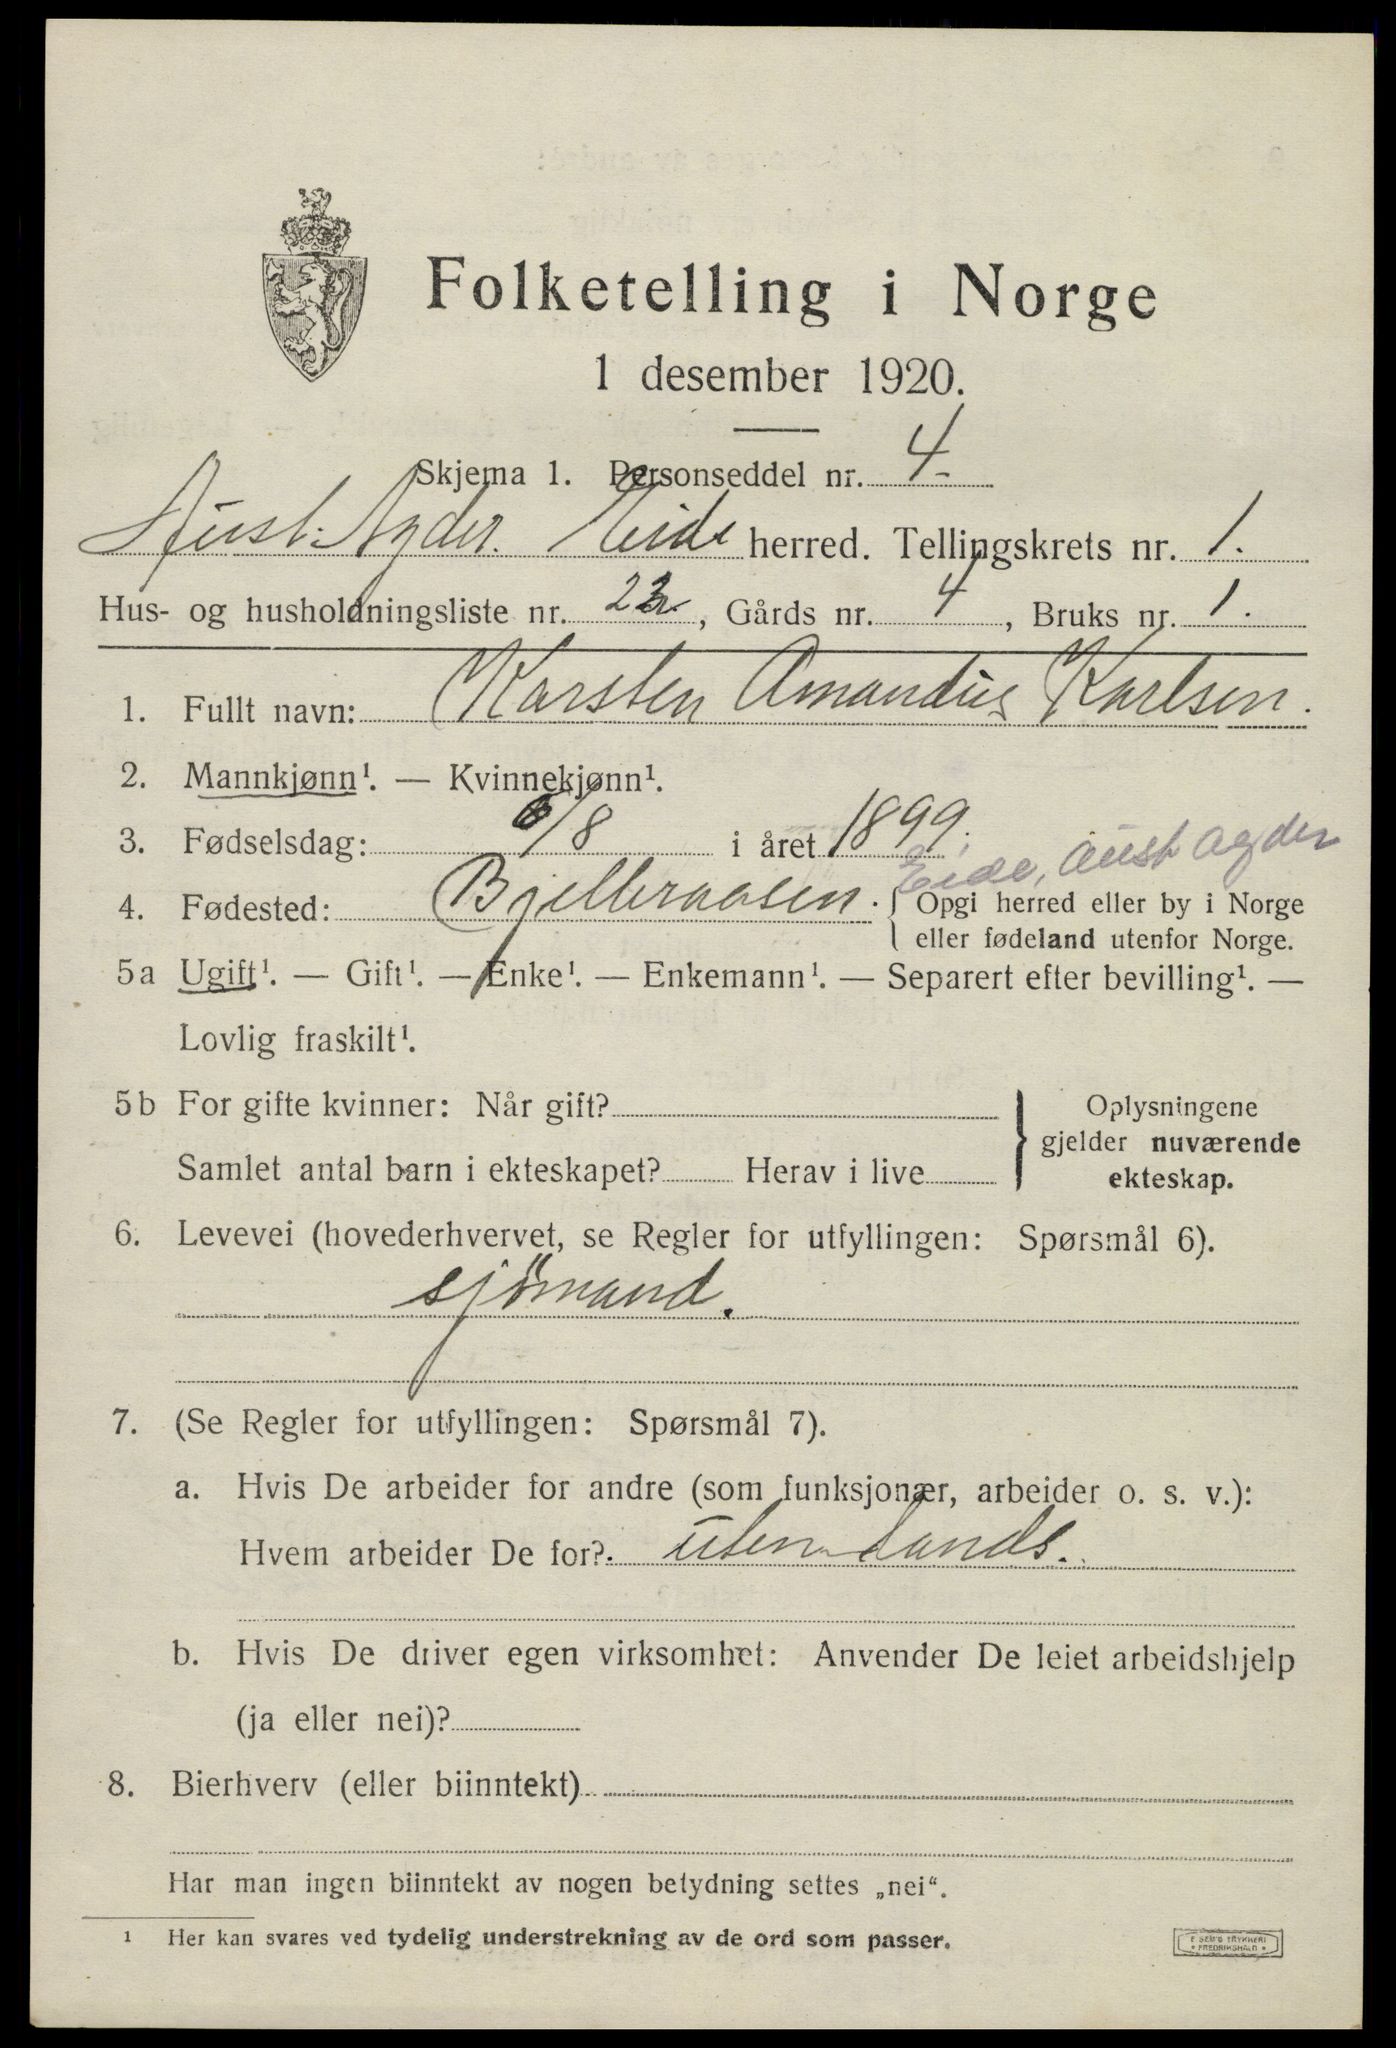 Folketelling i Norge
1 desember 1920.
Skjema 1. Personseddel nr. 4.
Aust-Agder. Eide herred. Tellingskrets nr. 1.
Hus- og husholdningsliste nr. 22, Gårds nr. 4, Bruks nr. 1.
1. Fullt navn: Karsten Amandus Karlsen.
2. Mannkjønn¹. — Kvinnekjønn¹.
3. Fødselsdag: 6/8 i året 1899.
Eide, Aust Agder
4. Fødested: Bjelleraasen. { Opgi herred eller by i Norge
eller fødeland utenfor Norge.
5a Ugift¹. — Gift¹. — Enke¹. — Enkemann¹. — Separert efter bevilling¹. —
Lovlig fraskilt¹.
5b For gifte kvinner: Når gift?
Samlet antal barn i ekteskapet? Herav i live
} Oplysningene
gjelder nuværende
ekteskap.
6. Levevei (hovederhvervet, se Regler for utfyllingen: Spørsmål 6).
sjömand.
7. (Se Regler for utfyllingen: Spørsmål 7).
a. Hvis De arbeider for andre (som funksjonær, arbeider o. s. v.):
Hvem arbeider De for? uten-Lands.
b. Hvis De driver egen virksomhet: Anvender De leiet arbeidshjelp
(ja eller nei)?
8. Bierhverv (eller biinntekt)
Har man ingen biinntekt av nogen betydning settes „nei“.
¹ Her kan svares ved tydelig understrekning av de ord som passer.
E SEM'S TRYKKERI
* FREDRIKSHALD *